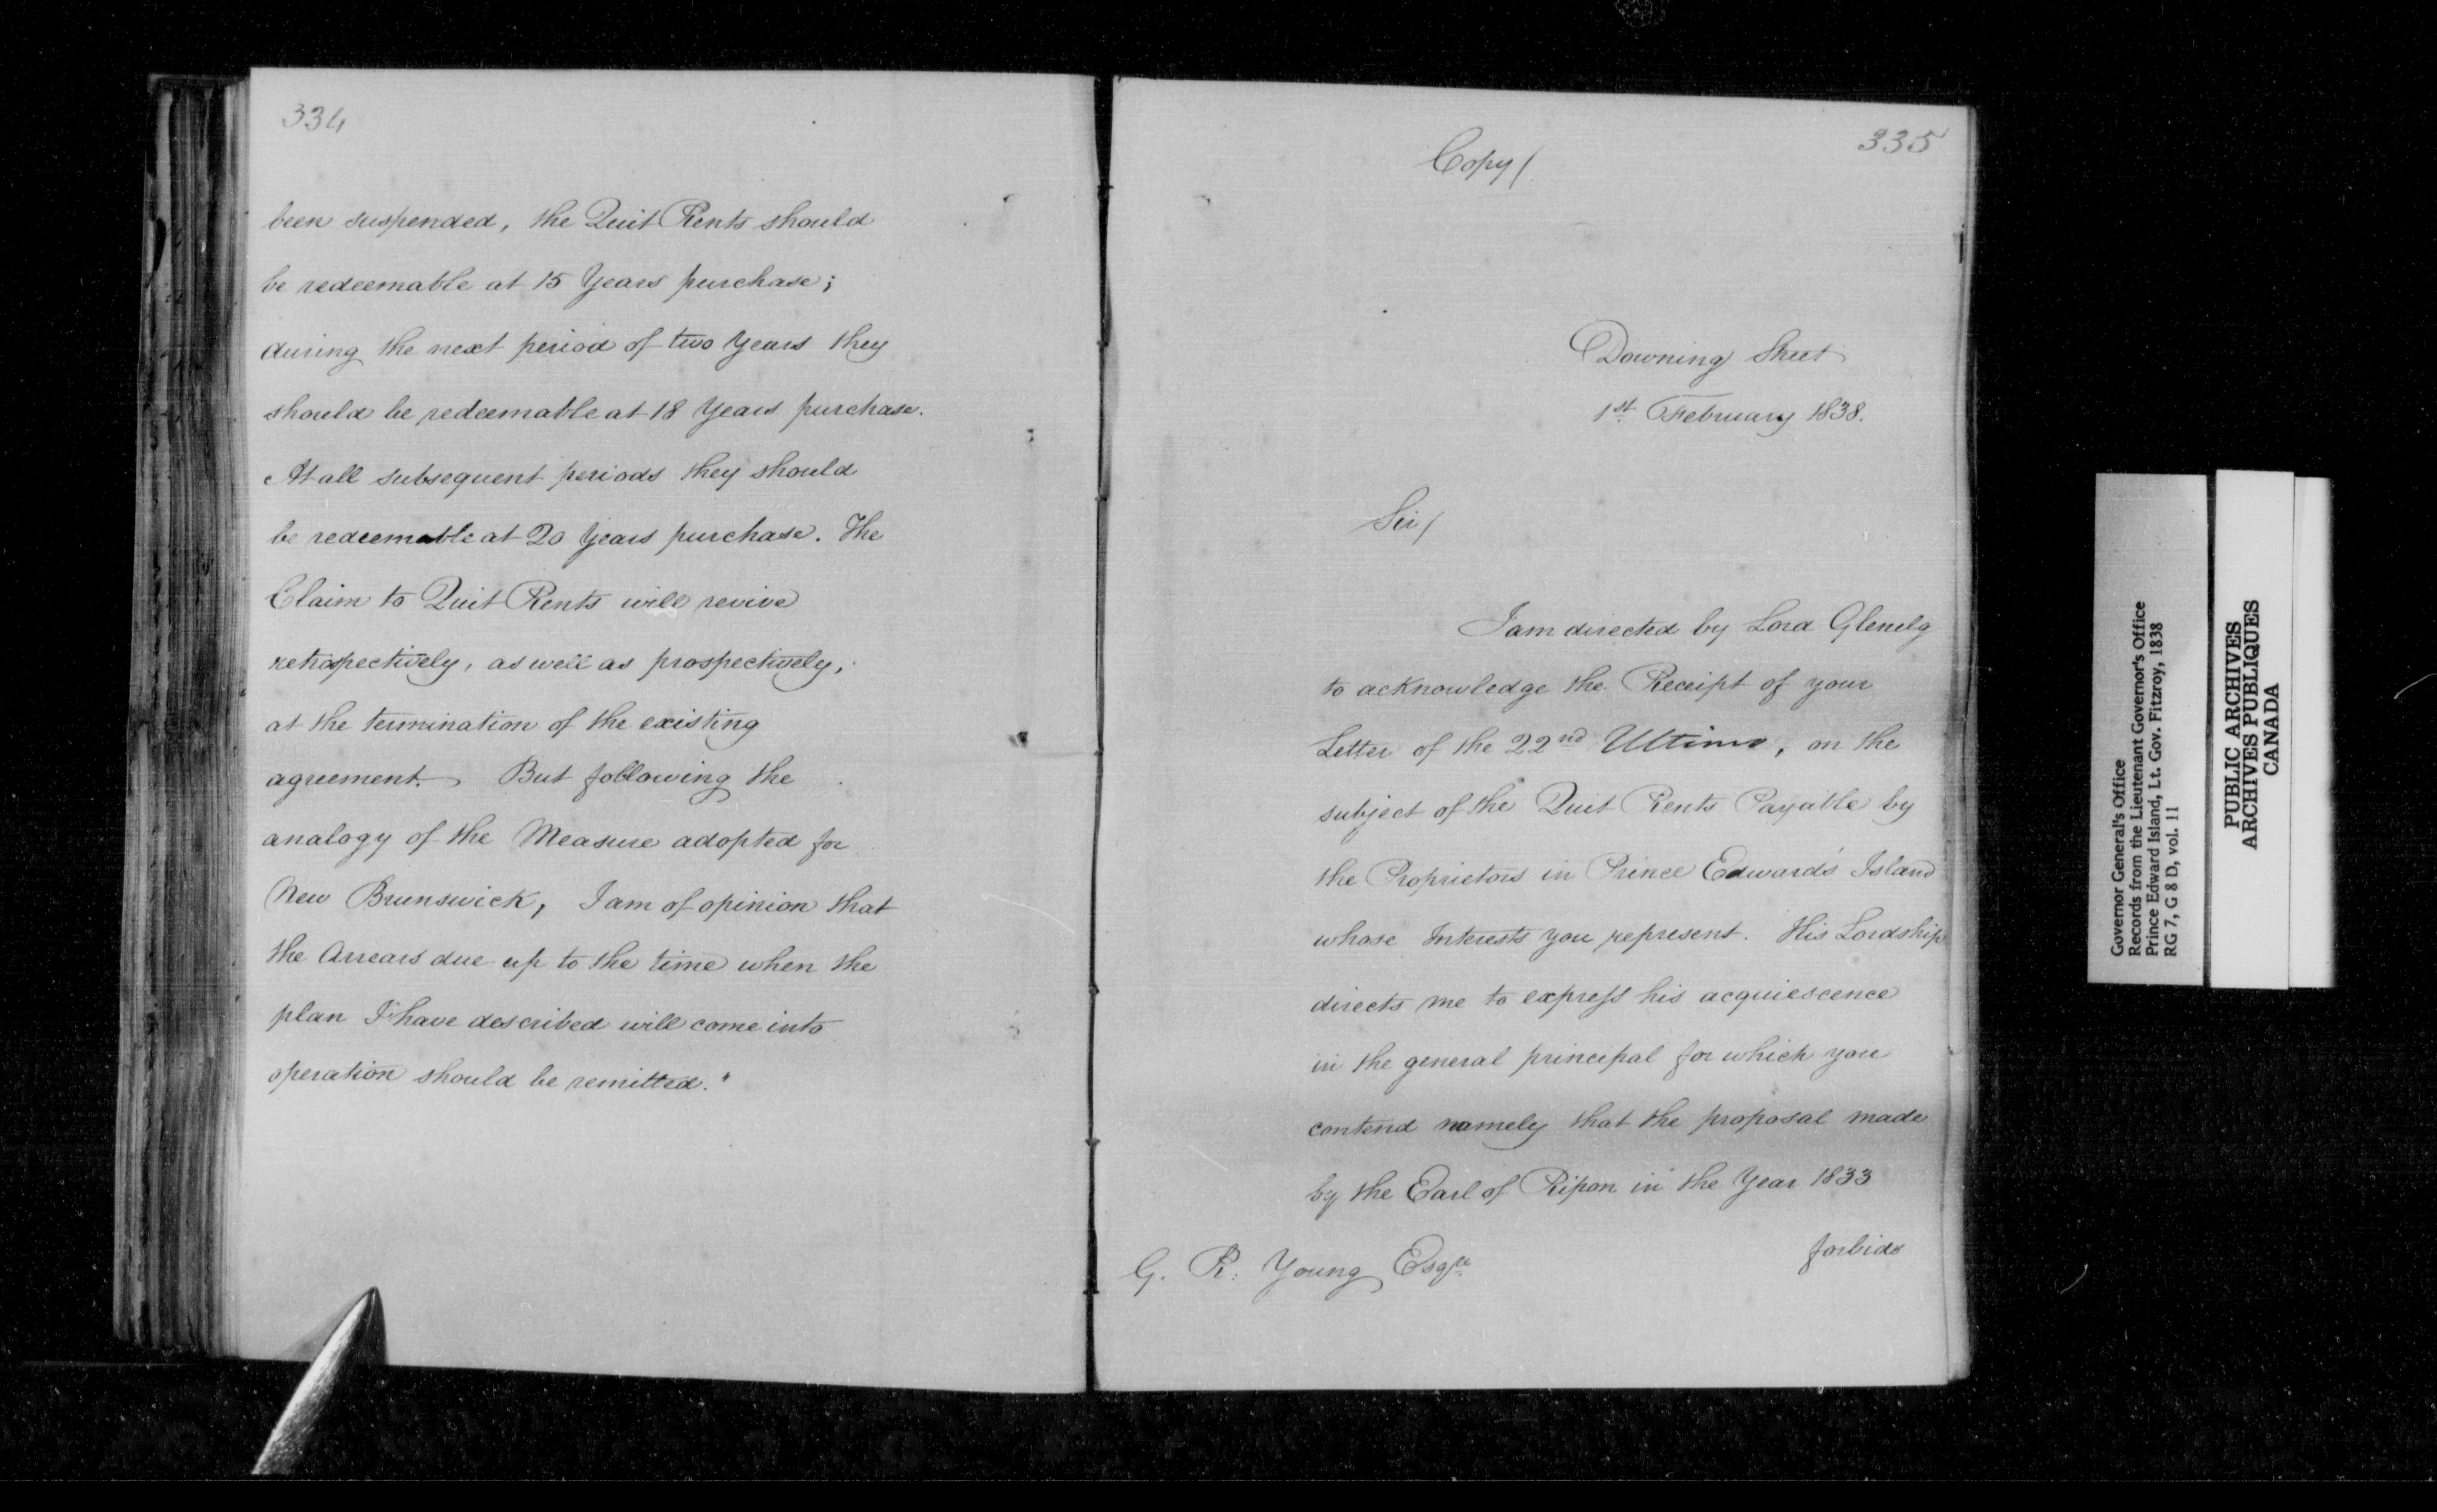 334
been suspended, the Quit Rents should
be redeemable at 15 Years purchase;
during the next period of two Years they
should be redeemable at 18 Years purchase.
At all subsequent periods they should
be redeemable at 20 Years purchase. The
Claim to Quit Rents will revive
retrospectively, as well as prospectively,
at the termination of the existing
agreement. But following the
analogy of the Measure adopted for
New Brunswick, I am of opinion that
the Arrears due up to the time when the
plan I have described will come into
operation should be remitted."
335
Copy/
Downing Street
1st February 1838.
Sir/
I am directed by Lord Glenelg
to acknowledge the Receipt of your
Letter of the 22nd Ultimo, on the
subject of the Quit Rents Payable by
the Proprietors in Prince Edward's Island
whose Interests you represent. His Lordship
directs me to express his acquiescence
in the general principal for which you
contend namely that the proposal made
by the Earl of Ripon in the Year 1833
forbids
G. R. Young Esqre
Governor General's Office
Records from the Lieutenant Governor's Office
Prince Edward Island, Lt. Gov. Fitzroy, 1838
RG 7, G 8 D, vol. 11
PUBLIC ARCHIVES
ARCHIVES PUBLIQUES
CANADA